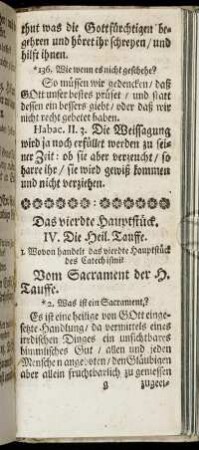 thut was die Gottsfürchtigen be-
gehren und höret ihr schreyen/ und
hilft ihnen.
*136. Wie wenn es nicht geschehe?
So müssen wir gedencken/ daß
GOtt unser bestes prüfet/ und statt
dessen ein bessers giebt/ oder daß wir
nicht recht gebeten haben.
Habac. II. 3. Die Weissagung
wird ja noch erfüllet werden zu sei-
ner Zeit: ob sie aber verzeucht/ so
harre ihr/ sie wird gewiß kommen
und nicht verziehen.
Das vierdte Hauptstück.
IV. Die Heil. Tauffe.
1. Wovon handelt das vierdte Hauptstück
des Catechismi?
Vom Sacrament der H.
Tauffe.
*2. Was ist ein Sacrament?
Es ist eine heilige von GOtt einge-
setzte Handlung/ da vermittels eines
irrdischen Dinges ein unsichtbares
himmlisches Gut/ allen und jeden
Menschen angeboten/ den Gläubigen
aber allein fruchtbarlich zu geniessen
g zugeei-